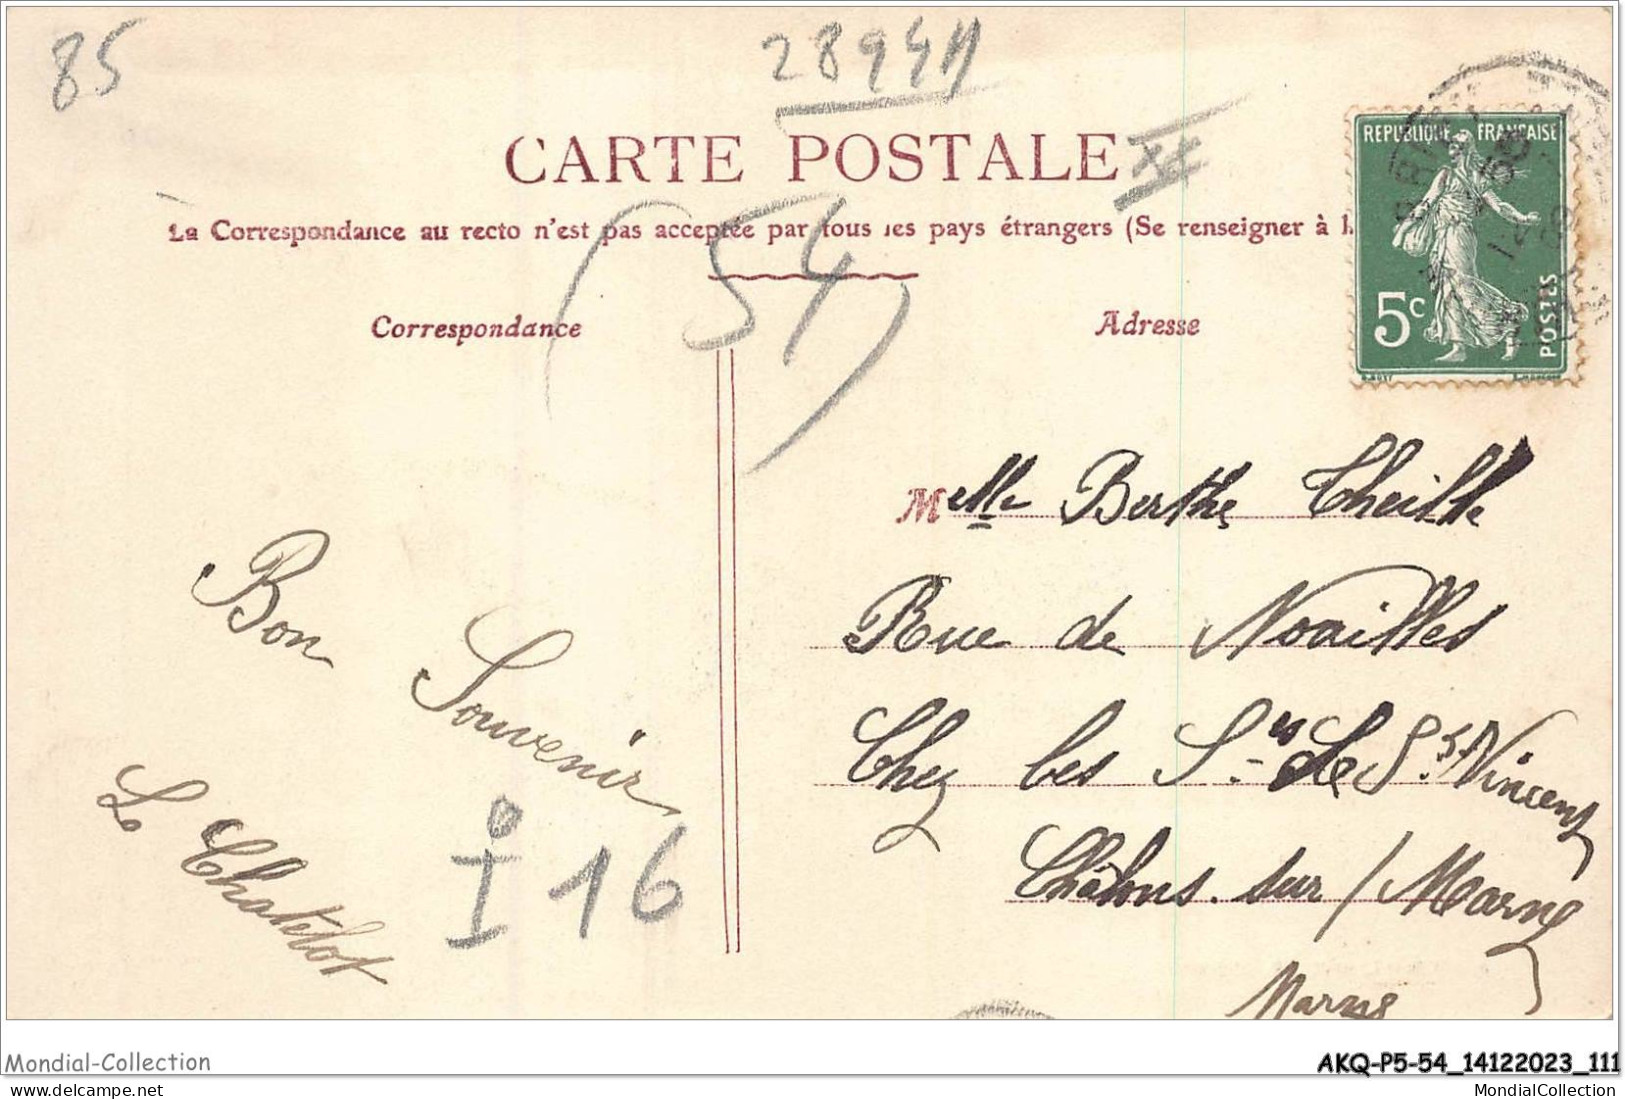 85
2894A
CARTE POSTALE
La Correspondance au recto n'est pas acceptée par tous les pays étrangers (Se renseigner à l
(54)
Correspondance
Adresse
REPUBLIQUE FRANÇAISE
5c
POSTES
Melle Berthe
Rue de Noailles
Chez les Srs de St Vincent
Châlons. sur / Marne
Marne
Bon
Souvenir
L. Chatelot
I 16
Mondial-Collection
AKQ-P5-54_14122023_111
MondialCollection